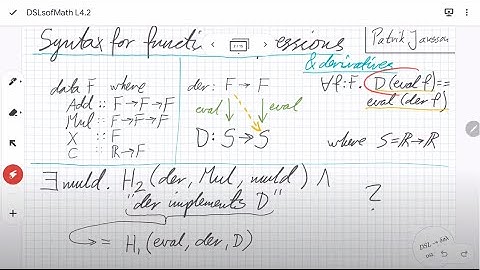 DSLsofMath L4.2
Syntax for functi essions
& derivatives
Patrik Jansson
data F where
Add :: F → F → F
Mul :: F → F → F
X :: F
C :: ℝ → F
der: F → F
eval ↓ ↓ eval
D: S → S
∀f:F. D(eval f) ==
eval (der f)
where S=ℝ→ℝ
∃ muld. H₂(der, Mul, muld) ∧
"der implements D"
?
= H₁(eval, der, D)